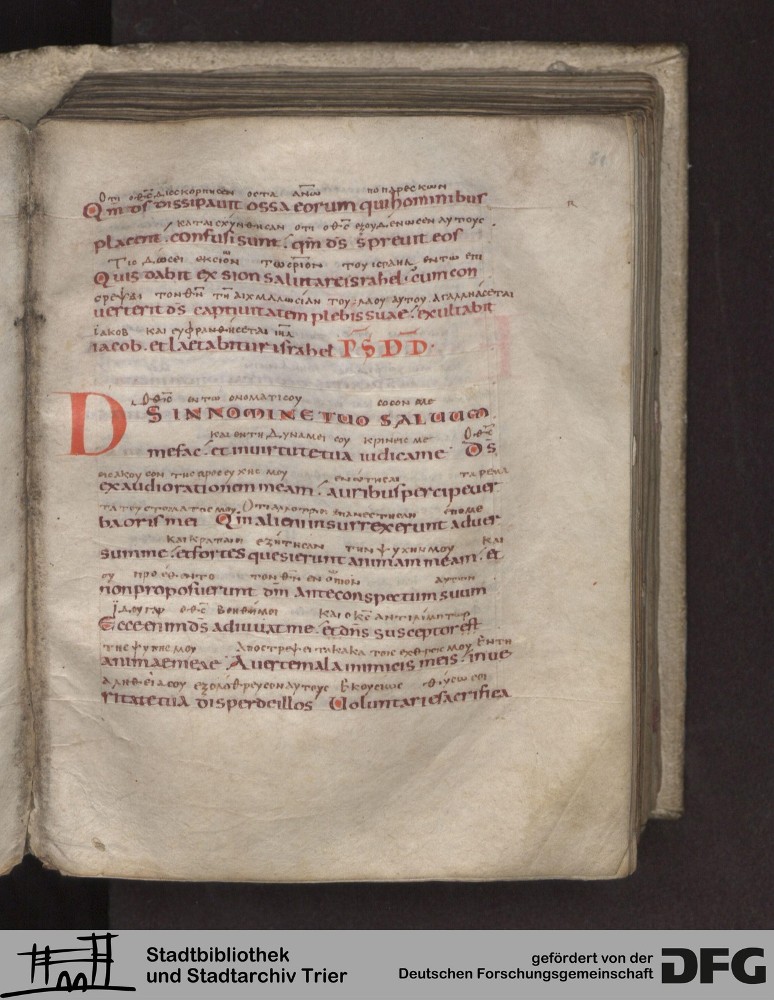 51
Οτι ο θεc διεcκορπιcεν οcτα ανων
Qm ds dissipauit ossa eorum qui hominibus
καταιcχυνθηcαν οτι ο θεc εξουδενωcεν αυτουc
placent . confusi sunt . qm ds spreuit eos
Τιc δωcει εκ cιων το cριον του ιcραηλ εν τω επι
Quis dabit ex sion salutare israhel . cum con
cρεψαι τον θν την αιχμαλωcιαν του λαου αυτου . αγαλλιαcεται
uerterit ds captiuitatem plebis suae . exultabit
ιακοβ και ευφρανθηcεται ιηλ
iacob . et laetabitur israhel P̅S̅ D̅D̅ .
ο θεc εν τω ονοματι cου cοcον με
DS IN NOMINE TUO SALUUM
και εν τη δυναμει cου κρινειc με Ο θεc
me fac . et in uirtute tua iudica me Ds
ειcακουcον τηc προcευχηc μου ενωτιcαι τα ρεμα
exaudi orationem meam . auribus percipe uer
τα του cτοματοc μου Οτι αλλοτριοι επανεcτηcαν επ εμε
ba oris mei Qm alieni insurrexerunt aduer
και κραταιοι εζητηcαν την ψυχην μου και
sum me . et fortes quesierunt animam meam . et
ου προεθεντο τον θν ενοπιον αυτων
non proposuerunt dm ante conspectum suum
Ιδου γαρ ο θεc βοηθι μοι και ο κc αντιλιμπτωρ
Ecce enim ds adiuuat me . et dns susceptor est
τηc ψυχηc μου Αποcτρεψει τα κακα τοιc εχθρειc μου Εν τη
animae meae . Auerte mala inimicis meis . in ue
αληθεια cου εξολοθρευcον αυτουc Εκουcιωc θυcω cοι
ritate tua disperde illos Uoluntarie sacrifica
Stadtbibliothek
und Stadtarchiv Trier
gefördert von der
Deutschen Forschungsgemeinschaft
DFG